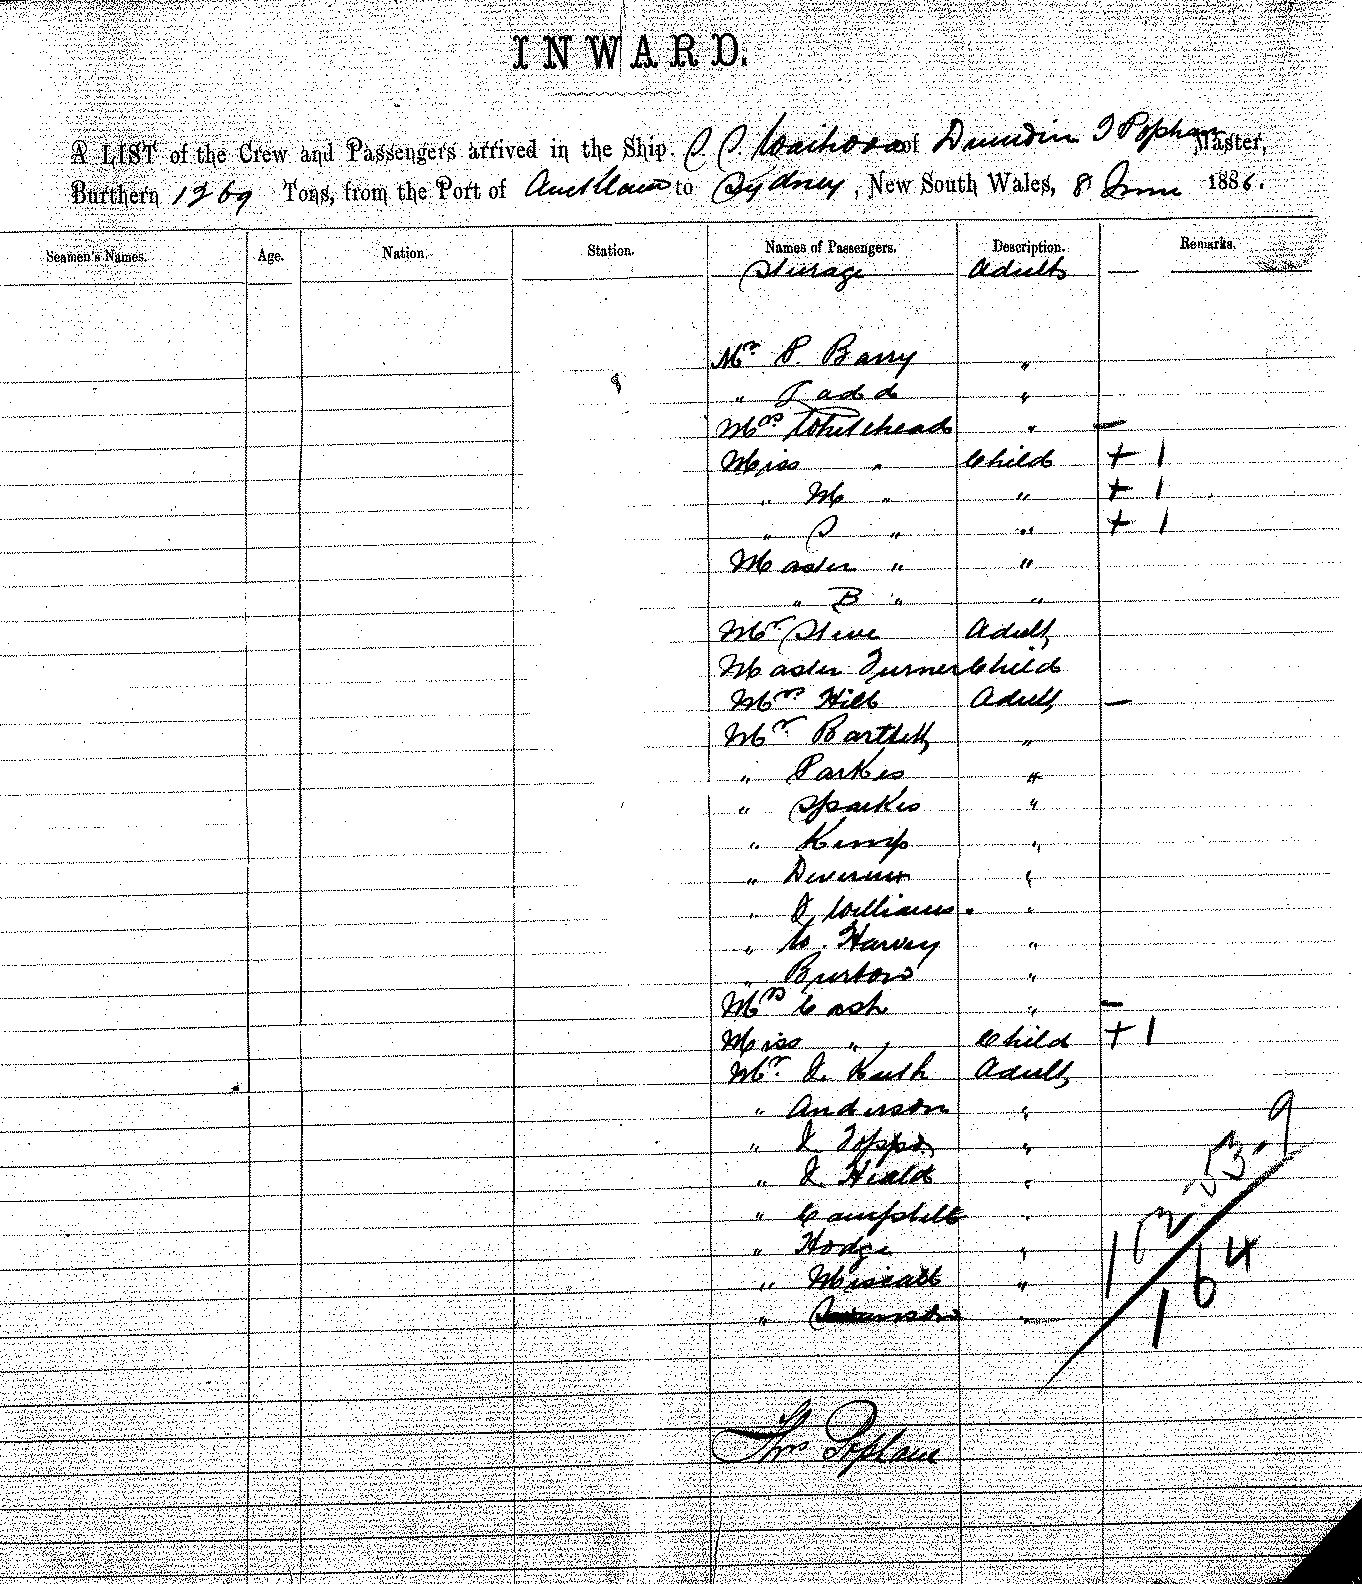 INWARD.
A LIST of the Crew and Passengers arrived in the Ship. S. S. Waihora of Dunedin T Popham Master,
Burthern 1269 Tons, from the Port of Auckland to Sydney, New South Wales, 8 June 1886.
Seamen's Names. Age. Nation. Station. Names of Passengers. Description. Remarks.
Steerage Adults —
Mr. P. Barry "
" Tadd "
Mrs. Whitehead " —
Miss " Child + 1
" M " " + 1
" S " " + 1
Master " "
" B " "
Mr Adult
Master Turner Child
Mrs. Hill Adult —
Mr. Bartlett "
" Parkes "
" Sparkes "
" Kemp "
" Devereux "
" J Williams. "
" W. Harvey "
" Burton "
Mrs Cash " —
Miss " Child + 1
Mr. Adult
" Anderson "
" "
" J. Heald "
" Campbell "
" Hodge "
" "
" "
9
53.
164
Thos Popham